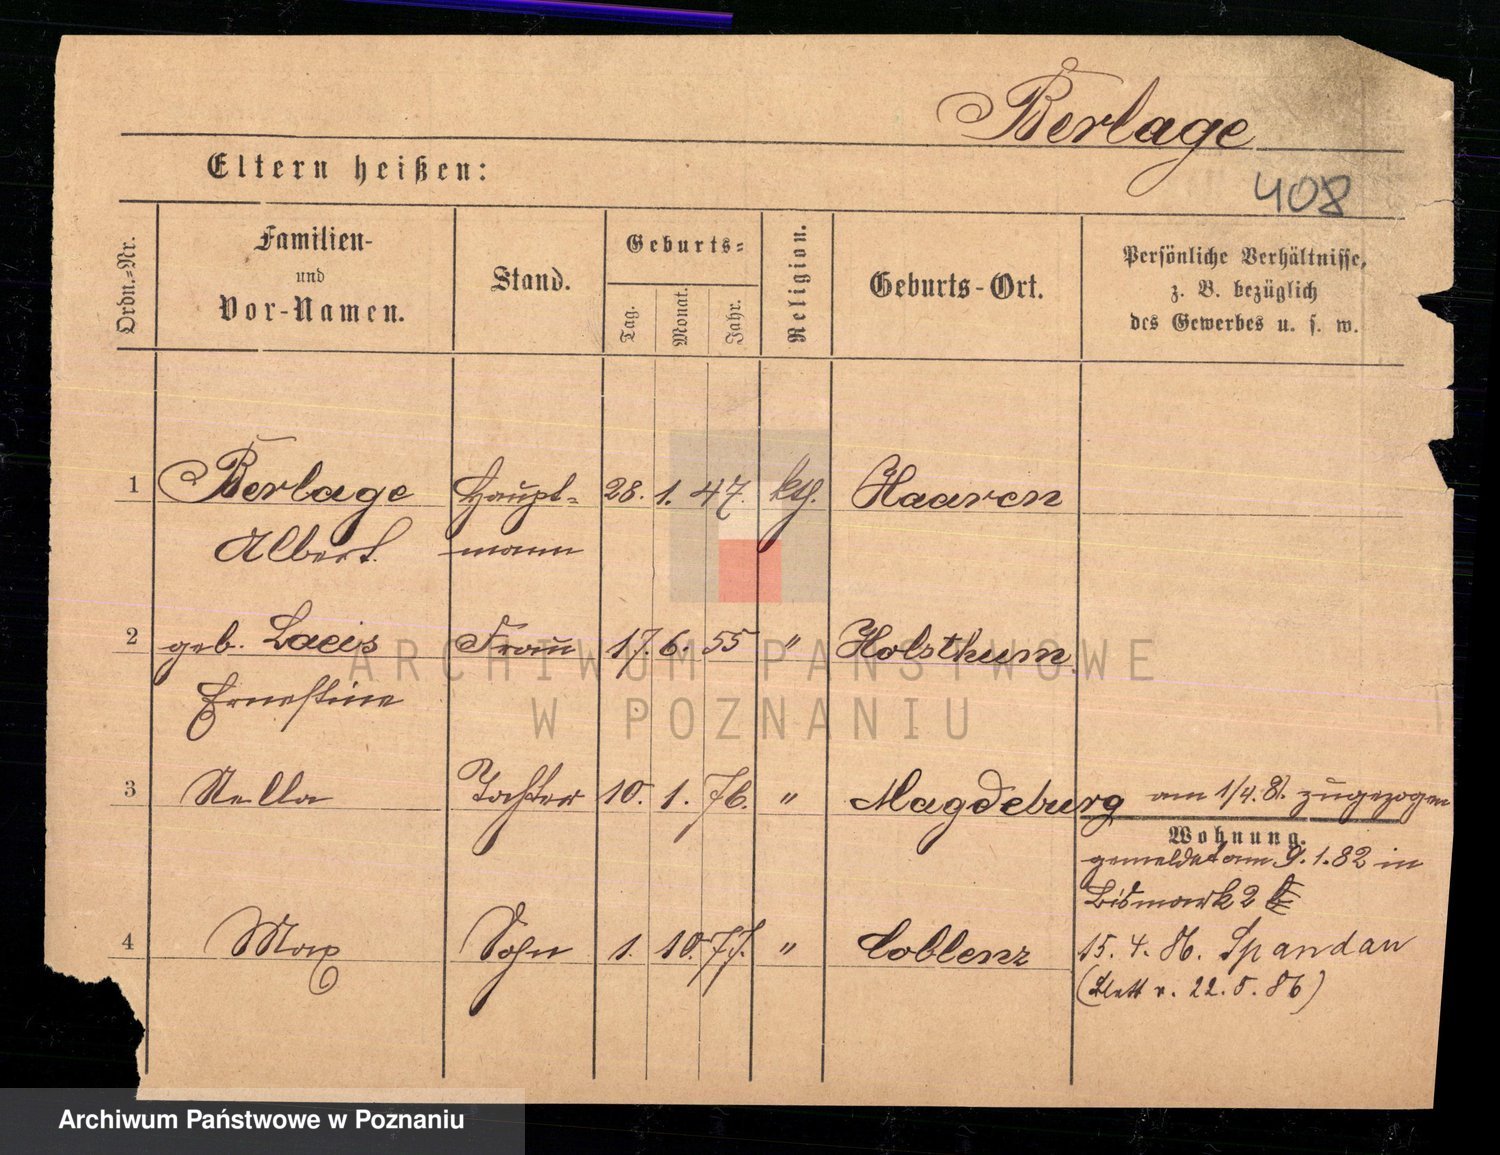 Berlage
Eltern heißen:
408
Ordn.-Nr.
Familien-
und
Vor-Namen.
Stand.
Geburts-
Tag.
Monat.
Jahr.
Religion.
Geburts-Ort.
Persönliche Verhältnisse,
z. B. bezüglich
des Gewerbes u. s. w.
1 Berlage Haupt- 28. 1. 47. kth. Haaren
Albert. mann
2 geb. Lacis Frau 17. 6. 55 " Holsthum
Ernestine
3 Stella Tochter 10. 1. 76. " Magdeburg am 1/4.81. zugezogen
Wohnung.
gemeldet am 9.1.82 in
Bismark 2
4 Max Sohn 1. 10. 77. " Coblenz 15. 4. 86. Spandau
(Blatt v. 22.5.86)
ARCHIWUM PAŃSTWOWE
W POZNANIU
Archiwum Państwowe w Poznaniu